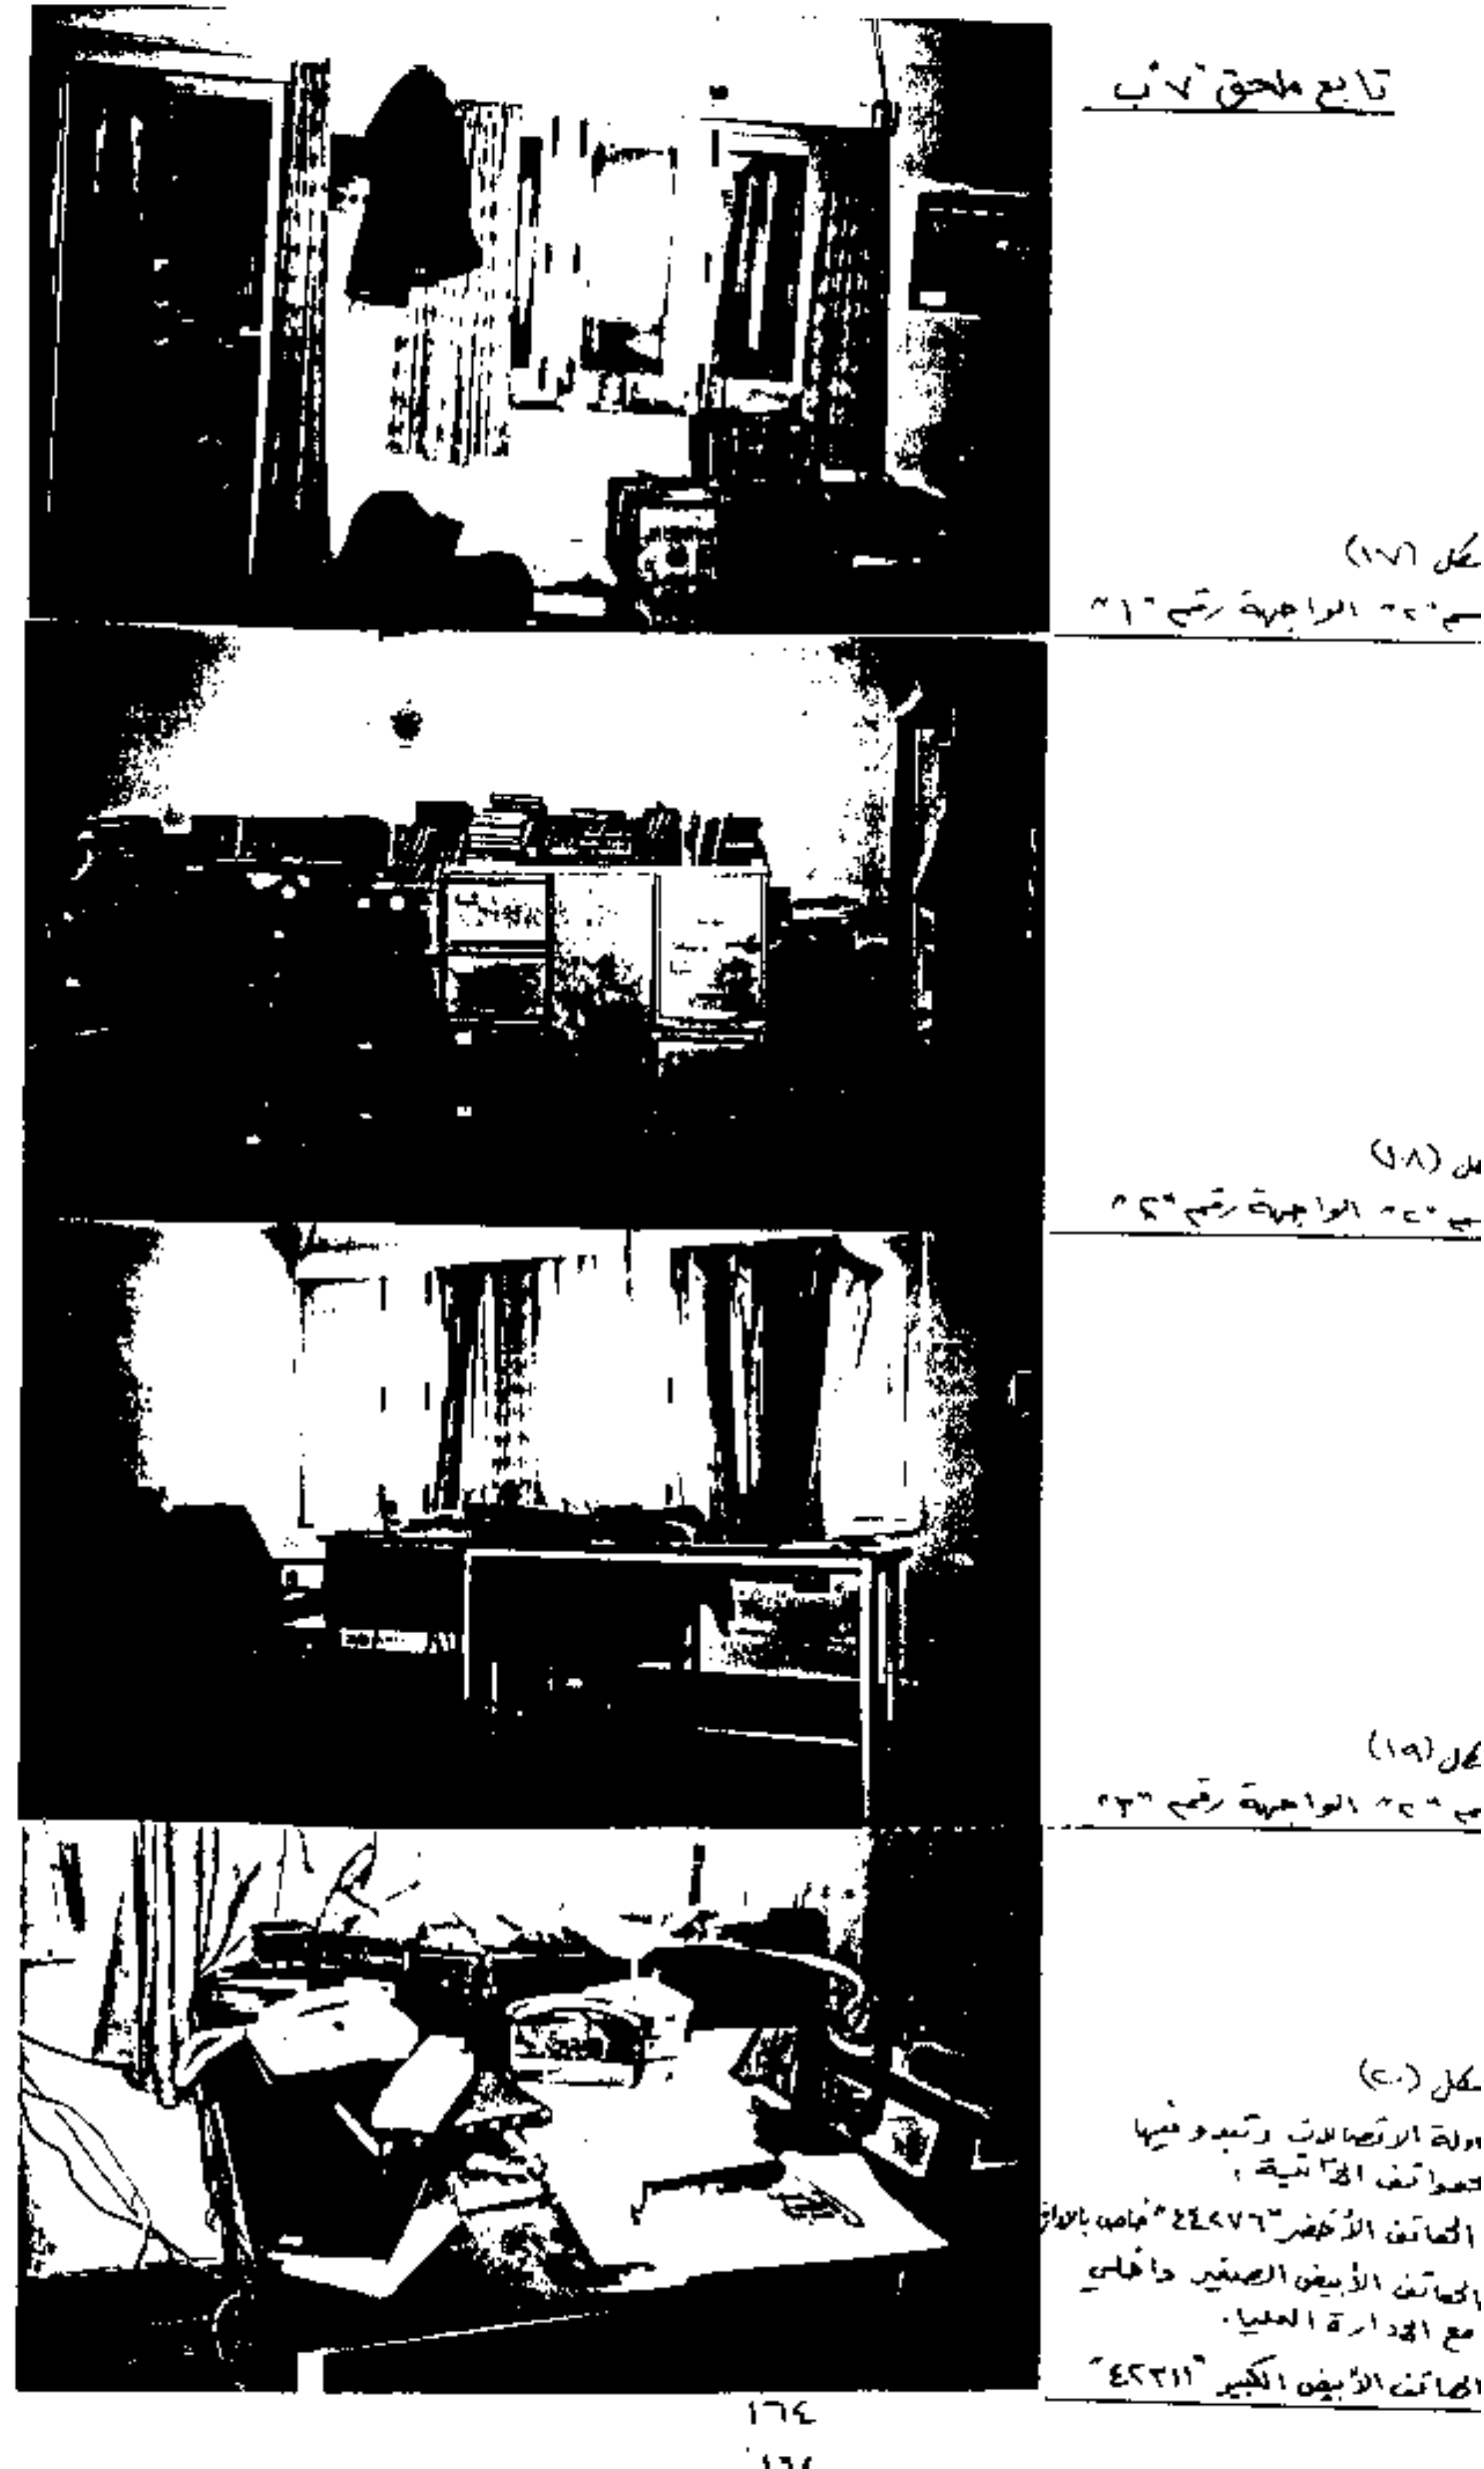 تابع ملحق "٧" ب
(١٧)
"٢" الواجهة رقم "١"
(١٨)
"٢" الواجهة رقم "٢"
(١٩)
"٢" الواجهة رقم "٣"
(٢٠)
الاتصالات وتبدو فيها
الآتية :
الهاتف الأخضر "٤٤٢٧٦" خاص
الهاتف الأبيض الصغير داخلي
مع الإدارة العليا .
الهاتف الأبيض الكبير "٤٢٣١١"
١٦٤
١٦٤